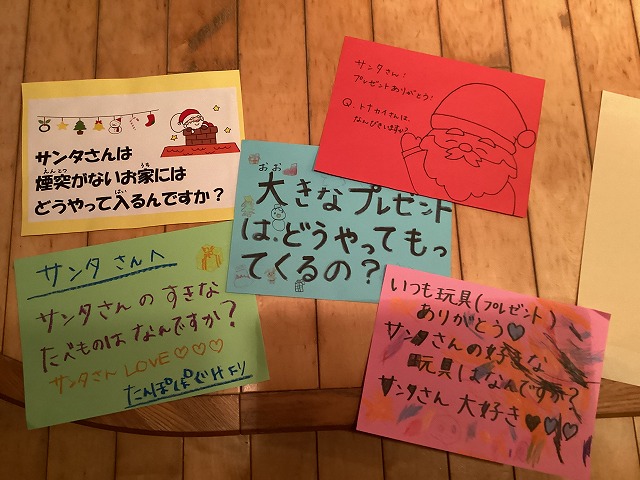 サンタさんは
煙突がないお家には
えんとつ
うち
どうやって入るんですか?
はい
サンタさん!
プレゼントありがとう!
Q.トナカイさんは、
なんびきいますか?
大きなプレゼント
おお
は、どうやってもっ
てくるの?
サンタさんへ
サンタさんのすきな
たべものはなんですか?
サンタさんLOVE♡♡♡
たんぽぽぐみより
いつも玩具(プレゼント)
ありがとう♡
サンタさんの好きな
玩具はなんですか?
サンタさん 大好き♡♡♡